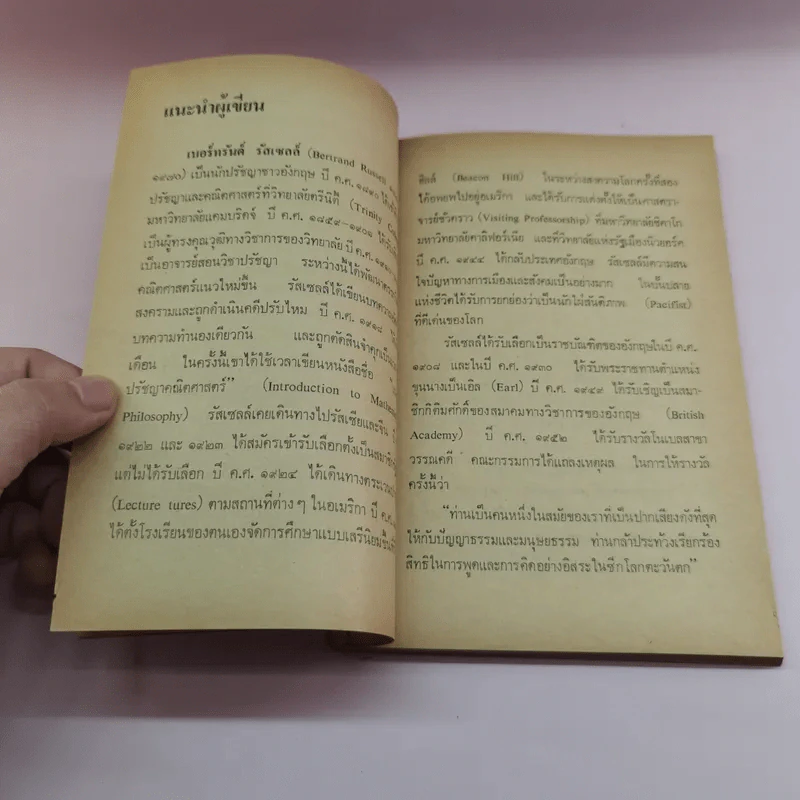 แนะนำผู้เขียน
เบอร์ทรันด์ รัสเซลล์ (Bertrand Russell
๑๙๗๐) เป็นนักปรัชญาชาวอังกฤษ ปี ค.ศ. ๑๘๙๐
ปรัชญาและคณิตศาสตร์ที่วิทยาลัยตรีนิตี้ (Trinity
มหาวิทยาลัยแคมบริดจ์ ปี ค.ศ. ๑๘๕๙-๑๙๐๑
เป็นผู้ทรงคุณวุฒิทางวิชาการของวิทยาลัย ปี ค.ศ.
เป็นอาจารย์สอนวิชาปรัชญา ระหว่างนี้ได้พัฒนา
คณิตศาสตร์แนวใหม่ขึ้น รัสเซลล์ได้เขียนบทความ
สงครามและถูกดำเนินคดีปรับไหม ปี ค.ศ. ๑๙๑๘
บทความทำนองเดียวกัน และถูกตัดสินจำคุก
เดือน ในครั้งนี้เขาได้ใช้เวลาเขียนหนังสือชื่อ
ปรัชญาคณิตศาสตร์" (Introduction to
Philosophy) รัสเซลล์เคยเดินทางไปรัสเซียและจีน ปี
๑๙๒๒ และ ๑๙๒๓ ได้สมัครเข้ารับเลือกตั้งเป็นสมาชิก
แต่ไม่ได้รับเลือก ปี ค.ศ. ๑๙๒๔ ได้เดินทางตระเวน
(Lecture tures) ตามสถานที่ต่างๆ ในอเมริกา ปี ค.ศ.
ได้ตั้งโรงเรียนของตนเองจัดการศึกษาแบบเสรีนิยมขึ้น
ฮิลล์ (Beacon Hill) ในระหว่างสงครามโลกครั้งที่สอง
ได้อพยพไปอยู่อเมริกา และได้รับการแต่งตั้งให้เป็นศาสตรา-
จารย์ชั่วคราว (Visiting Professorship) ที่มหาวิทยาลัยชิคาโก
มหาวิทยาลัยคาลิฟอร์เนีย และที่วิทยาลัยแห่งรัฐเมืองนิวยอร์ค
ปี ค.ศ. ๑๙๔๔ ได้กลับประเทศอังกฤษ รัสเซลล์มีความสน
ใจปัญหาทางการเมืองและสังคมเป็นอย่างมาก ในบั้นปลาย
แห่งชีวิตได้รับการยกย่องว่าเป็นนักใฝ่สันติภาพ (Pacifist)
ที่ดีเด่นของโลก
รัสเซลล์ได้รับเลือกเป็นราชบัณฑิตของอังกฤษในปี ค.ศ.
๑๙๐๘ และในปี ค.ศ. ๑๙๓๐ ได้รับพระราชทานตำแหน่ง
ขุนนางเป็นเอิล (Earl) ปี ค.ศ. ๑๙๔๙ ได้รับเชิญเป็นสมา-
ชิกกิติมศักดิ์ของสมาคมทางวิชาการของอังกฤษ (British
Academy) ปี ค.ศ. ๑๙๕๒ ได้รับรางวัลโนเบลสาขา
วรรณคดี คณะกรรมการได้แถลงเหตุผล ในการให้รางวัล
ครั้งนี้ว่า
"ท่านเป็นคนหนึ่งในสมัยของเราที่เป็นปากเสียงดังที่สุด
ให้กับปัญญาธรรมและมนุษยธรรม ท่านกล้าประท้วงเรียกร้อง
สิทธิในการพูดและการคิดอย่างอิสระในซีกโลกตะวันตก"